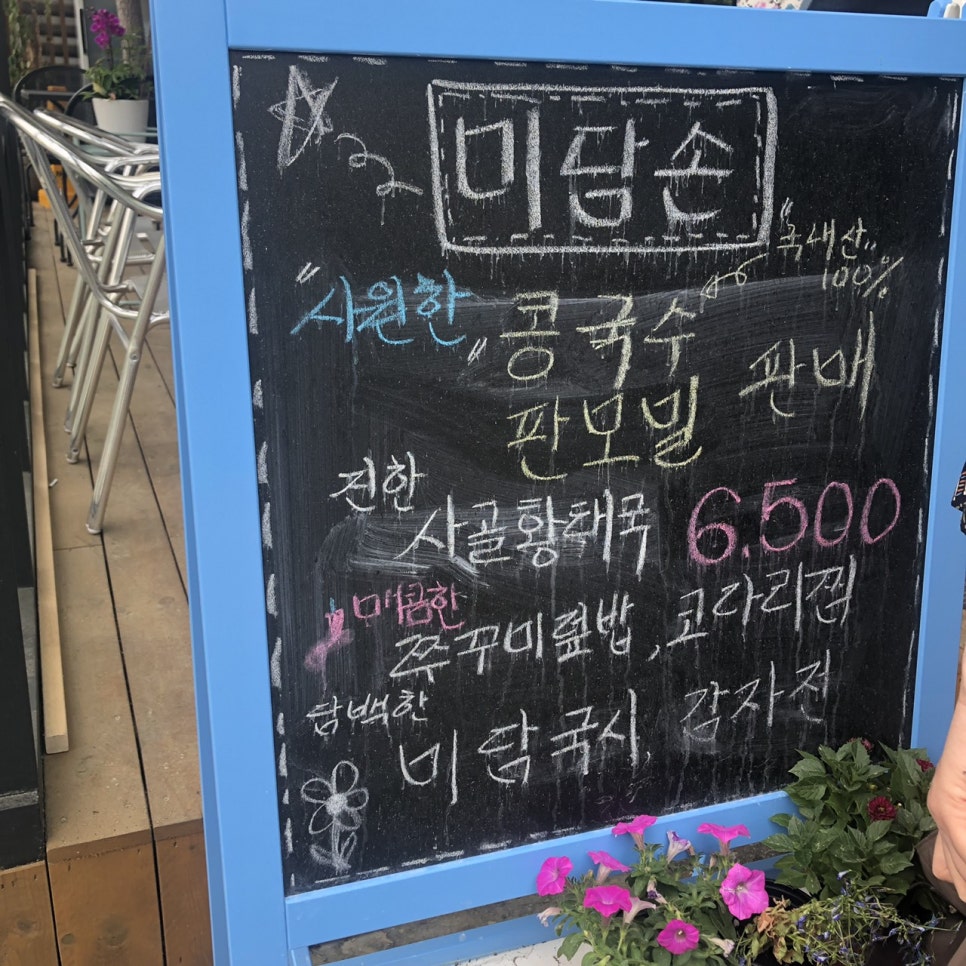 미담손
"국내산"
100%
"시원한" 콩국수
판모밀 판매
진한
사골황태국 6.500
매콤한
쭈꾸미덮밥, 코다리찜
담백한
미담국시, 감자전